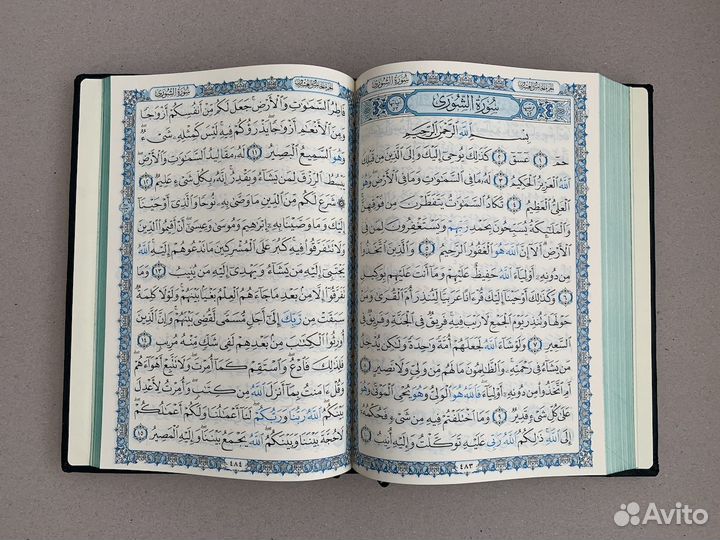 سُورَةُ الشُّورَىٰ
سُورَةُ الشُّورَىٰ
بِسْمِ اللَّهِ الرَّحْمَٰنِ الرَّحِيمِ
حمٓ ١ عٓسٓقٓ ٢ كَذَٰلِكَ يُوحِىٓ إِلَيْكَ وَإِلَى الَّذِينَ مِن قَبْلِكَ
اللَّهُ الْعَزِيزُ الْحَكِيمُ ٣ لَهُۥ مَا فِى السَّمَٰوَٰتِ وَمَا فِى الْأَرْضِ وَهُوَ
الْعَلِىُّ الْعَظِيمُ ٤ تَكَادُ السَّمَٰوَٰتُ يَتَفَطَّرْنَ مِن فَوْقِهِنَّ
وَالْمَلَٰٓئِكَةُ يُسَبِّحُونَ بِحَمْدِ رَبِّهِمْ وَيَسْتَغْفِرُونَ لِمَن فِى
الْأَرْضِ أَلَآ إِنَّ اللَّهَ هُوَ الْغَفُورُ الرَّحِيمُ ٥ وَالَّذِينَ اتَّخَذُوا۟
مِن دُونِهِۦٓ أَوْلِيَآءَ اللَّهُ حَفِيظٌ عَلَيْهِمْ وَمَآ أَنتَ عَلَيْهِم بِوَكِيلٍ
٦ وَكَذَٰلِكَ أَوْحَيْنَآ إِلَيْكَ قُرْءَانًا عَرَبِيًّا لِّتُنذِرَ أُمَّ الْقُرَىٰ وَمَنْ
حَوْلَهَا وَتُنذِرَ يَوْمَ الْجَمْعِ لَا رَيْبَ فِيهِ فَرِيقٌ فِى الْجَنَّةِ وَفَرِيقٌ فِى
السَّعِيرِ ٧ وَلَوْ شَآءَ اللَّهُ لَجَعَلَهُمْ أُمَّةً وَٰحِدَةً وَلَٰكِن يُدْخِلُ
مَن يَشَآءُ فِى رَحْمَتِهِۦ وَالظَّٰلِمُونَ مَا لَهُم مِّن وَلِىٍّ وَلَا نَصِيرٍ ٨
أَمِ اتَّخَذُوا۟ مِن دُونِهِۦٓ أَوْلِيَآءَ فَاللَّهُ هُوَ الْوَلِىُّ وَهُوَ يُحْىِ الْمَوْتَىٰ وَهُوَ
عَلَىٰ كُلِّ شَىْءٍ قَدِيرٌ ٩ وَمَا اخْتَلَفْتُمْ فِيهِ مِن شَىْءٍ فَحُكْمُهُۥٓ
إِلَى اللَّهِ ذَٰلِكُمُ اللَّهُ رَبِّى عَلَيْهِ تَوَكَّلْتُ وَإِلَيْهِ أُنِيبُ ١٠
٤٨٣
سُورَةُ الشُّورَىٰ
فَاطِرُ السَّمَٰوَٰتِ وَالْأَرْضِ جَعَلَ لَكُم مِّنْ أَنفُسِكُمْ أَزْوَٰجًا
وَمِنَ الْأَنْعَٰمِ أَزْوَٰجًا يَذْرَؤُكُمْ فِيهِ لَيْسَ كَمِثْلِهِۦ شَىْءٌ
وَهُوَ السَّمِيعُ الْبَصِيرُ ١١ لَهُۥ مَقَالِيدُ السَّمَٰوَٰتِ وَالْأَرْضِ
يَبْسُطُ الرِّزْقَ لِمَن يَشَآءُ وَيَقْدِرُ إِنَّهُۥ بِكُلِّ شَىْءٍ عَلِيمٌ ١٢
شَرَعَ لَكُم مِّنَ الدِّينِ مَا وَصَّىٰ بِهِۦ نُوحًا وَالَّذِىٓ أَوْحَيْنَآ
إِلَيْكَ وَمَا وَصَّيْنَا بِهِۦٓ إِبْرَٰهِيمَ وَمُوسَىٰ وَعِيسَىٰٓ أَنْ أَقِيمُوا۟ الدِّينَ
وَلَا تَتَفَرَّقُوا۟ فِيهِ كَبُرَ عَلَى الْمُشْرِكِينَ مَا تَدْعُوهُمْ إِلَيْهِ اللَّهُ
يَجْتَبِىٓ إِلَيْهِ مَن يَشَآءُ وَيَهْدِىٓ إِلَيْهِ مَن يُنِيبُ ١٣ وَمَا
تَفَرَّقُوٓا۟ إِلَّا مِنۢ بَعْدِ مَا جَآءَهُمُ الْعِلْمُ بَغْيًۢا بَيْنَهُمْ وَلَوْلَا كَلِمَةٌ
سَبَقَتْ مِن رَّبِّكَ إِلَىٰٓ أَجَلٍ مُّسَمًّى لَّقُضِىَ بَيْنَهُمْ وَإِنَّ الَّذِينَ
أُورِثُوا۟ الْكِتَٰبَ مِنۢ بَعْدِهِمْ لَفِى شَكٍّ مِّنْهُ مُرِيبٍ ١٤
فَلِذَٰلِكَ فَادْعُ وَاسْتَقِمْ كَمَآ أُمِرْتَ وَلَا تَتَّبِعْ أَهْوَآءَهُمْ
وَقُلْ ءَامَنتُ بِمَآ أَنزَلَ اللَّهُ مِن كِتَٰبٍ وَأُمِرْتُ لِأَعْدِلَ
بَيْنَكُمُ اللَّهُ رَبُّنَا وَرَبُّكُمْ لَنَآ أَعْمَٰلُنَا وَلَكُمْ أَعْمَٰلُكُمْ
لَا حُجَّةَ بَيْنَنَا وَبَيْنَكُمُ اللَّهُ يَجْمَعُ بَيْنَنَا وَإِلَيْهِ الْمَصِيرُ ١٥
٤٨٤
Avito